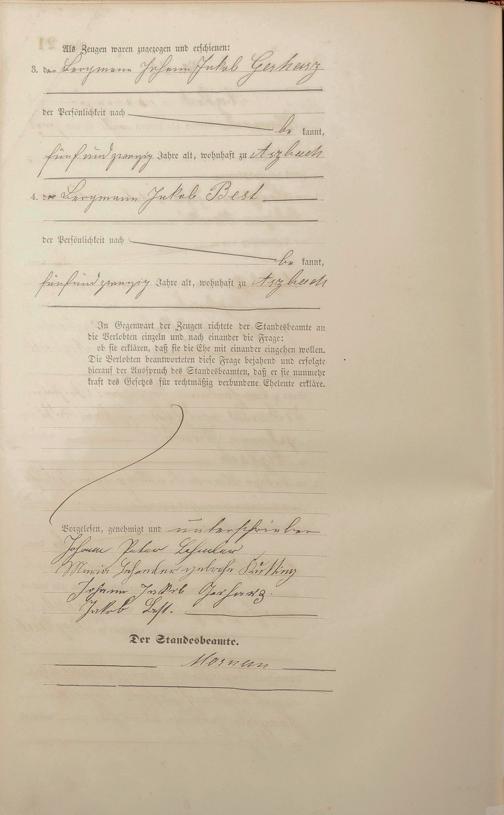 Als Zeugen waren zugezogen und erschienen:
3. der Bergmann Johann Jakob Gerharz
der Persönlichkeit nach
be kannt,
fünfundzwanzig Jahre alt, wohnhaft zu Arzbach
4. der Bergmann Jakob Best
der Persönlichkeit nach
be kannt,
fünfundzwanzig Jahre alt, wohnhaft zu Arzbach
In Gegenwart der Zeugen richtete der Standesbeamte an
die Verlobten einzeln und nach einander die Frage:
ob sie erklären, daß sie die Ehe mit einander eingehen wollen.
Die Verlobten beantworteten diese Frage bejahend und erfolgte
hierauf der Ausspruch des Standesbeamten, daß er sie nunmehr
kraft des Gesetzes für rechtmäßig verbundene Eheleute erkläre.
Vorgelesen, genehmigt und unterschrieben
Johann Peter
Maria geborene
Johann Jakob Gerharz.
Jakob Best.
Der Standesbeamte.